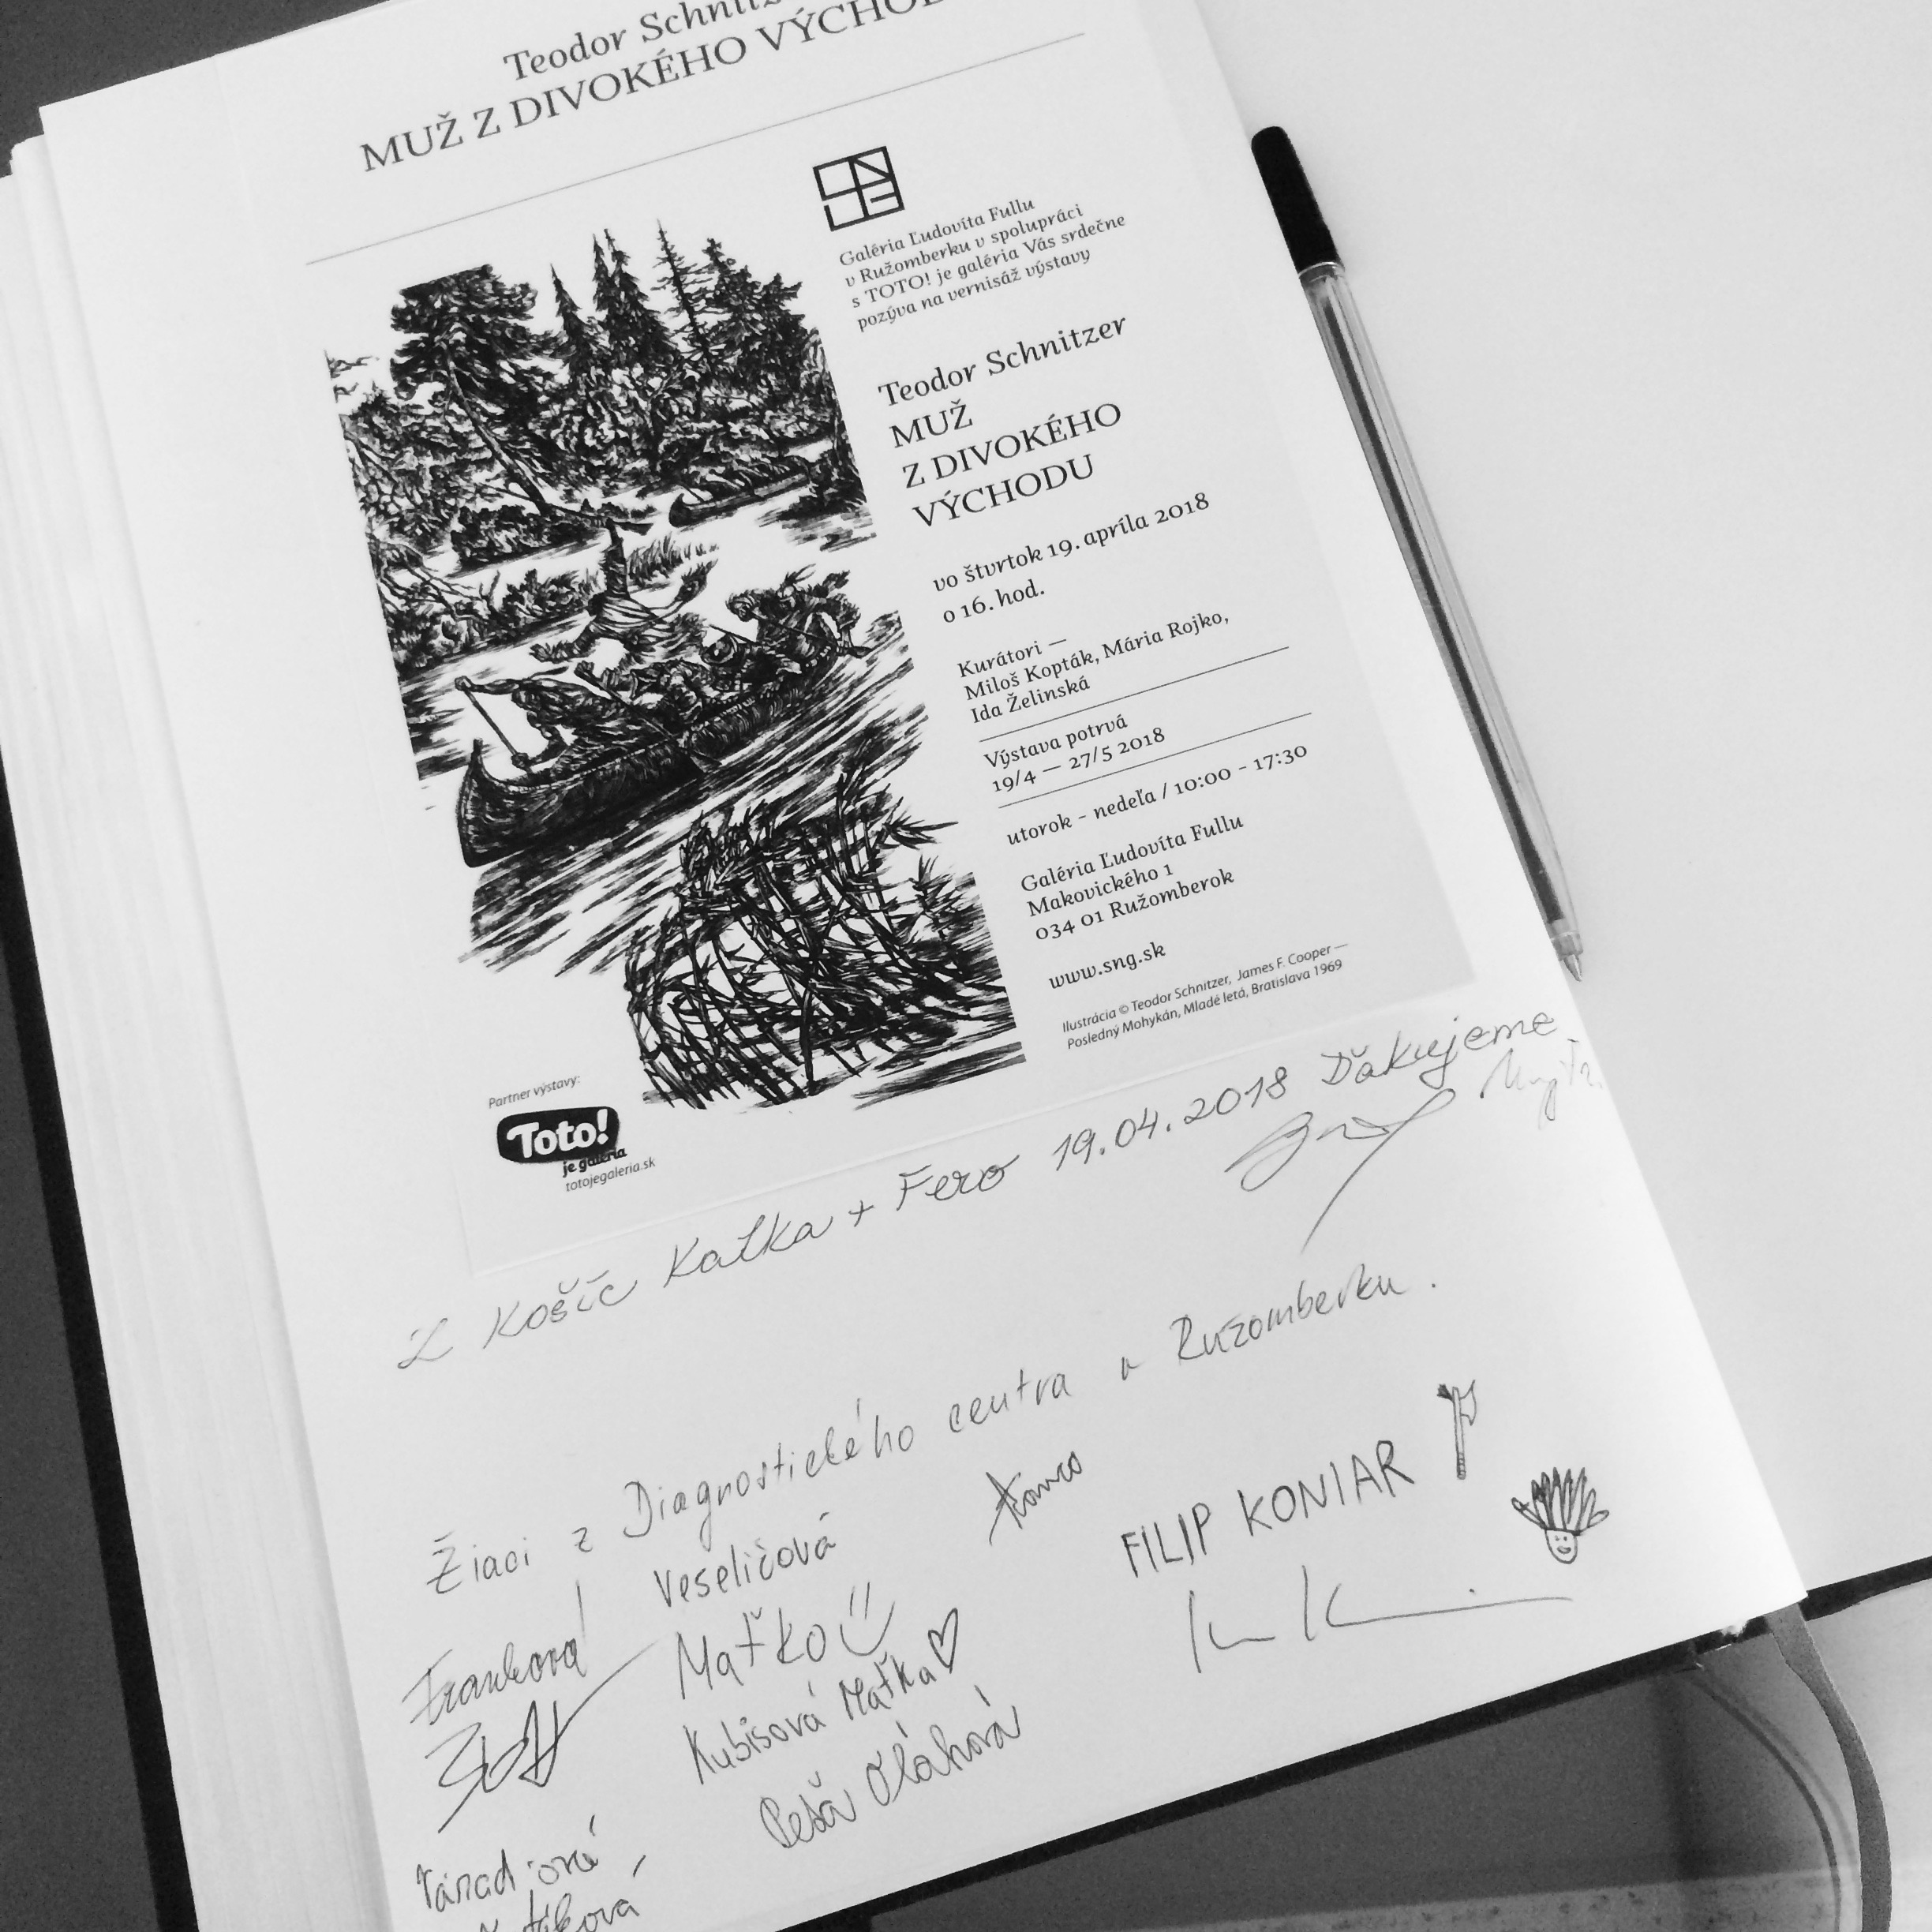 Teodor
MUŽ Z DIVOKÉHO
Galéria Ľudovíta Fullu
v Ružomberku v spolupráci
s TOTO! je galéria Vás srdečne
pozýva na vernisáž výstavy
Teodor Schnitzer
MUŽ
Z DIVOKÉHO
VÝCHODU
vo štvrtok 19. apríla 2018
o 16. hod.
Kurátori —
Miloš Kopták, Mária Rojko,
Ida Želinská
Výstava potrvá
19/4 — 27/5 2018
utorok - nedeľa / 10:00 - 17:30
Galéria Ľudovíta Fullu
Makovického 1
034 01 Ružomberok
www.sng.sk
Ilustrácia © Teodor Schnitzer, James F. Cooper —
Posledný Mohykán, Mladé letá, Bratislava 1969
Partner výstavy:
Toto!
je galéria
totojegaleria.sk
Z Košíc Katka + Fero 19.04.2018 Ďakujeme
Žiaci z Diagnostického centra v Ružomberku.
Veseličová
FILIP KONIAR
Maťko
Kubisová Maťka
Oláhová